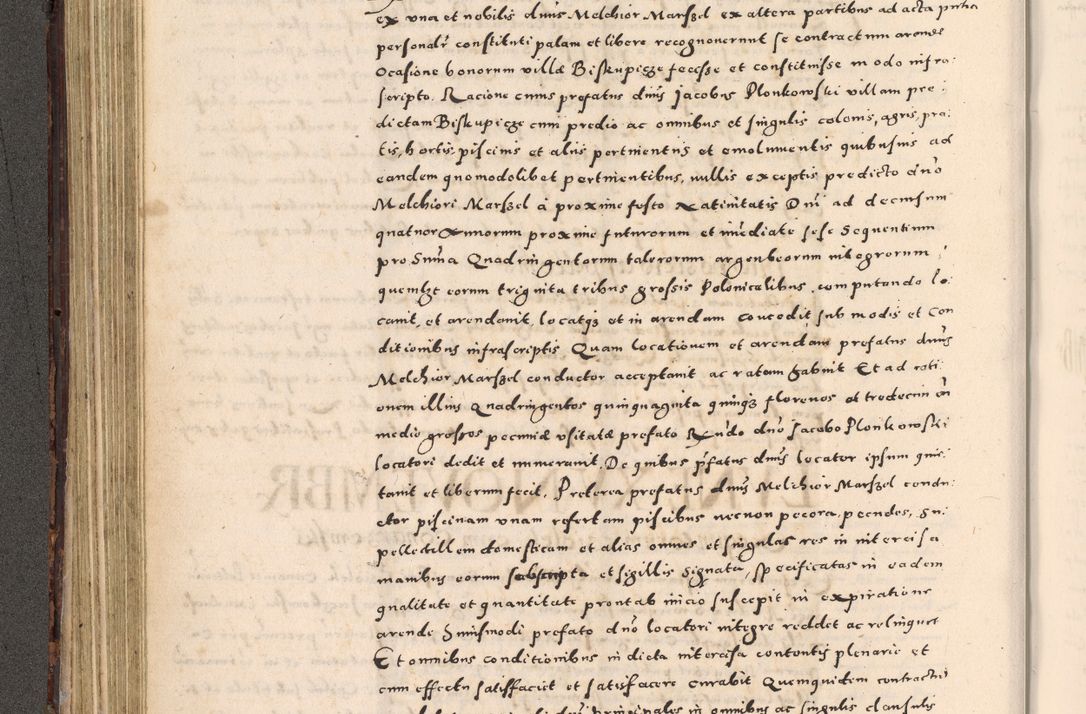 ex una et nobilis dnus Melchior Marszel ex altera partibus ad acta pntia
personalr constituti palam et libere recognoverunt se contractum arende
Ocasione bonorum villæ Biskupicze fecisse et constituisse modo infra:
scripto. Racione cuius prefatus dnus Jacobus Plonkowski villam pre:
dictam Biskupicze cum predio ac omnibus et singulis colonis, agris, pra:
tis, hortis, piscinis et aliis pertinentiis et emolumentis quibusuis ad
eandem quomodolibet pertinentibus, nullis exceptis predicto dno
Melchiori Marszel à proxime festo Natiuitatis Dni ad decursum
quatuor Annorum proxime futurorum et imediate sese sequentium
pro Suma Quadringentorum talerorum argenteorum integrorum,
quemlibet eorum triginta tribus grossis Polonicalibus, computando lo:
cauit, et arendauit, locatqz et in arendam concedit sub modis et con
ditionibus infrascriptis. Quam locationem et arendam prefatus dnus
Melchior Marszel conductor acceptauit ac ratam habuit Et ad rati:
onem illius Quadringentos quinquaginta quinqz florenos et tredecim cu
medio grossos pecuniæ vsitatæ prefato Rndo dno Jacobo Plonkowski
locatori dedit et numerauit. De quibus pfatus dnus locator ipsum quie:
tauit et liberum fecit. Preterea prefatus dnus Melchior Marszel condu:
ctor piscinam unam refertam piscibus necnon pecora, pecudes, su:
pellectillem domesticam et alias omnes et singulas res in intercisa
manibus eorum subscripta et sigillis signata, specificatas in eadem
qualitate et quantitate prout ab inicio suscepit in expiratione
arende huiusmodi prefato dno locatori integre reddet ac relinquet
Et omnibus conditionibus in dicta intercisa contentis plenarie et
cum effectu satisfaciet et satisfacere curabit Quemquidem contractu
principales in omnibus ac singulis clausulis